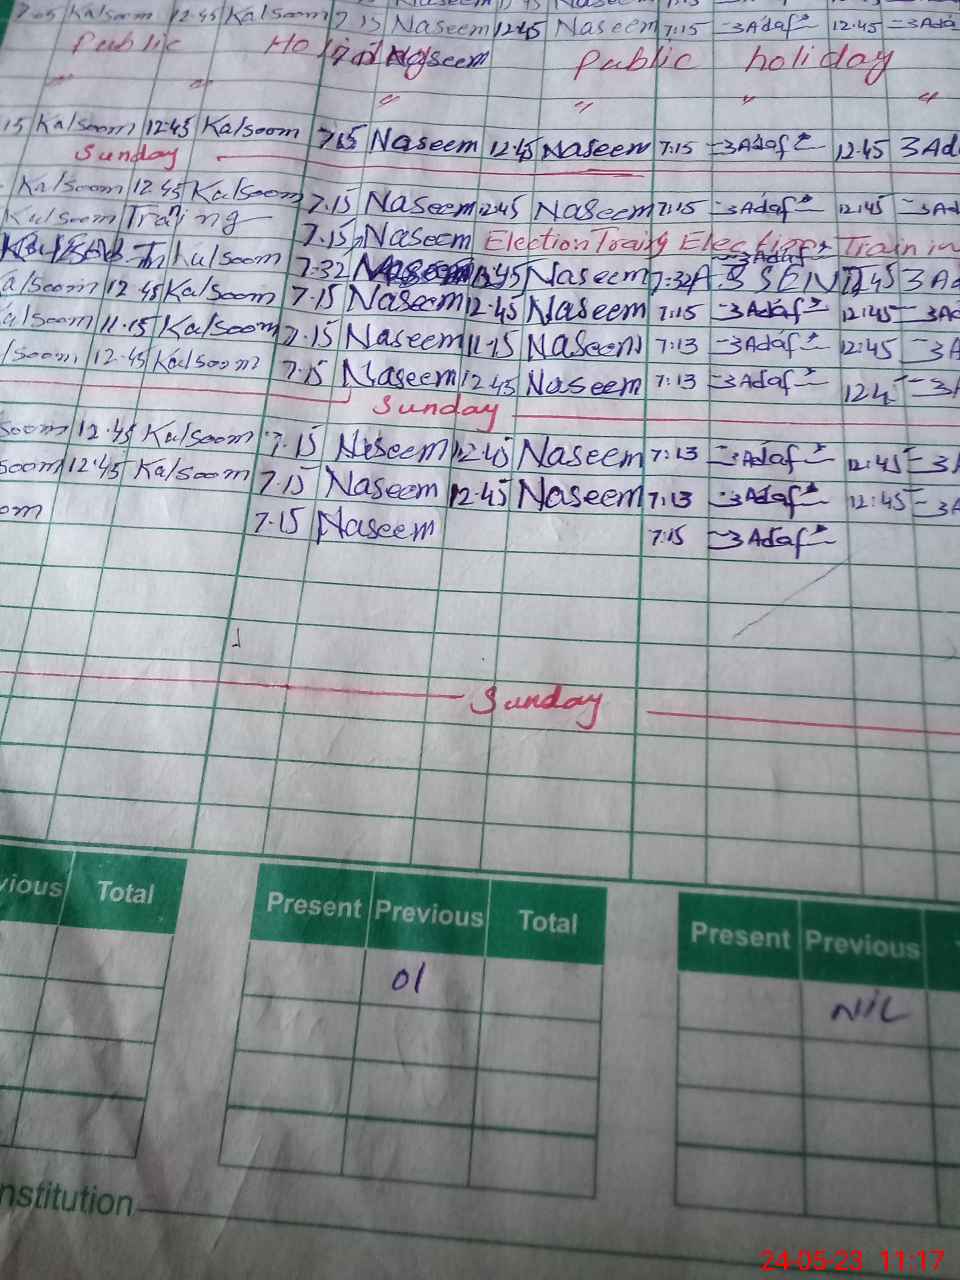 7.05 Kalsoom 12.45 Kalsoom 7.15 Naseem 12.45 Naseem 7:15 Adaf 12.45
Public Holiday Naseem Public holiday
" " " " " "
15 Kalsoom 12.45 Kalsoom 7.15 Naseem 12.45 Naseem 7:15 Adaf 12.45
Sunday
Kalsoom 12.45 Kalsoom 7.15 Naseem 12.45 Naseem 7:15 Adaf 12:45
Kalsoom Traing 7.15 Naseem Election Traing Election Train
Kalsoom 7:32 12.45 Naseem 7:32 ABSENT 12.45
alsoom 12.45 Kalsoom 7.15 Naseem 12.45 Naseem 7:15 Adaf 12:45
alsoom 11.15 Kalsoom 7.15 Naseem 11.15 Naseem 7:13 Adaf 12:45
lsoom 12.45 Kalsoom 7.15 Naseem 12.45 Naseem 7:13 Adaf 12.4
Sunday
soom 12.45 Kalsoom 7.15 Naseem 12.45 Naseem 7:13 Adaf 12:45
soom 12.45 Kalsoom 7.15 Naseem 12.45 Naseem 7:13 Adaf 12:45
om 7.15 Naseem 7:15 Adaf
Sunday
vious Total Present Previous Total Present Previous
01 NIL
nstitution
24-05-23 11:17